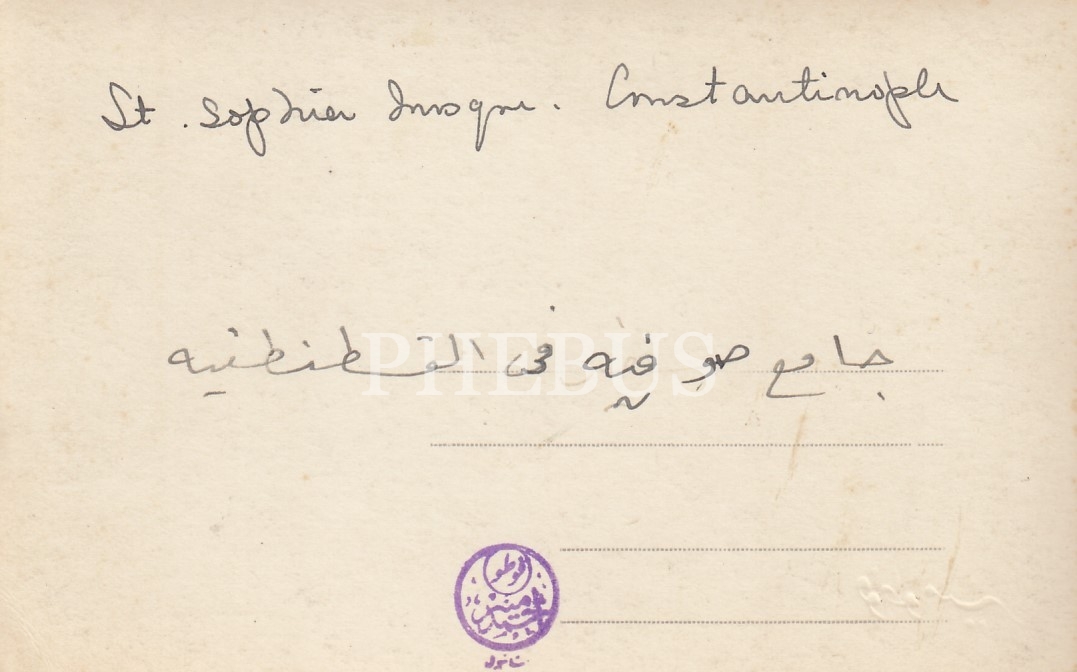 St. Sophia Mosque. Constantinople
جامع صوفيه في القسطنطنيه
PHEBUS
فوطو